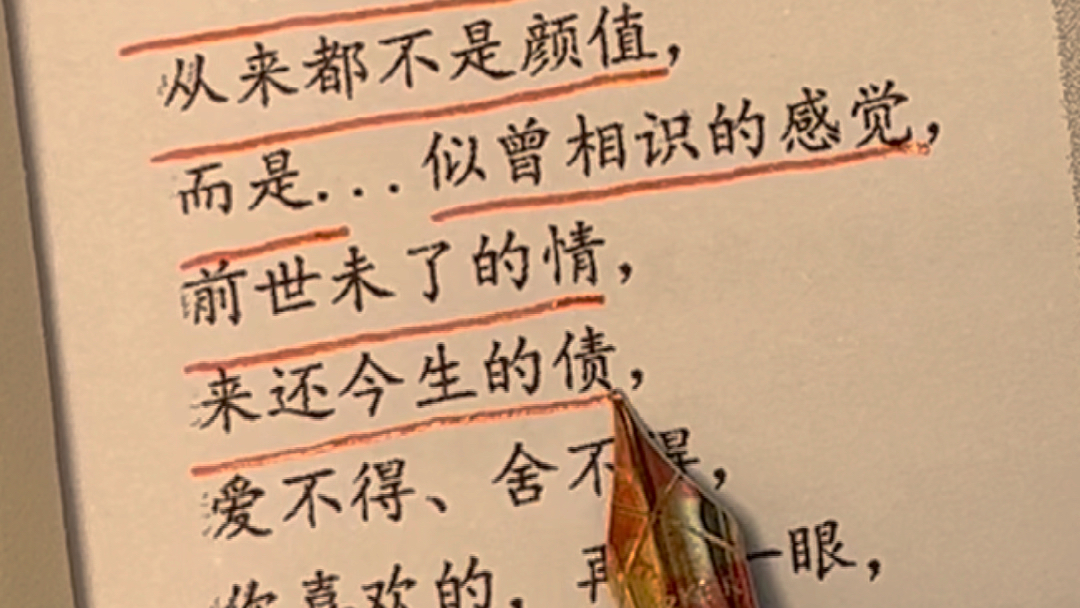 从来都不是颜值，
而是...似曾相识的感觉，
前世未了的情，
来还今生的债，
爱不得、舍不得，
你喜欢的，再一眼，